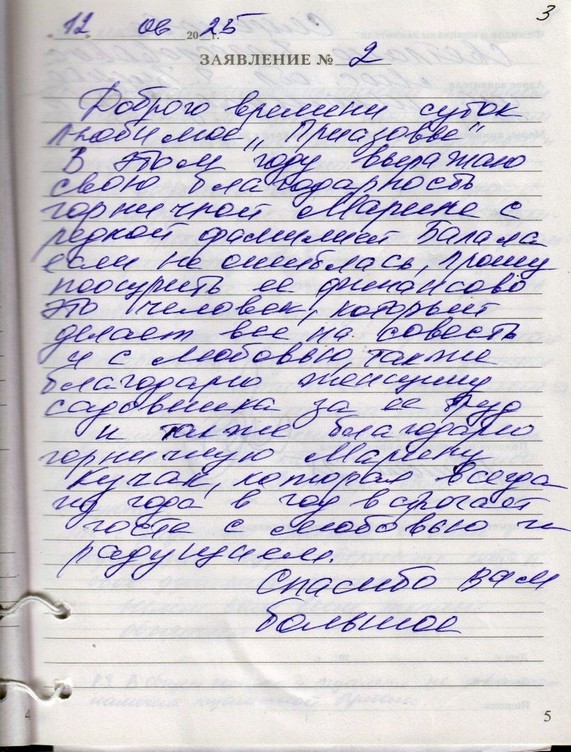 3
"12" 06 2025 г.
ЗАЯВЛЕНИЕ № 2
Доброго времени суток
любимое „Приазовье"
В этом году выражаю
свою благодарность
горничной Марине с
редкой фамилией Балала
если не ошиблась, прошу
поощрить ее финансово
это человек, который
делает все на совесть
и с любовью, также
благодарю женщину
садовника за ее труд
и также благодарю
горничную Марину
Кучак, которая всегда
из года в год встречает
гостя с любовью и
радушием.
Спасибо Вам
большое
4
5